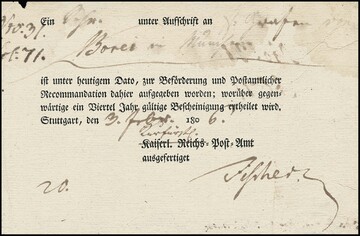 Ein unter Aufschrift an Grafen von
ist unter heutigem Dato, zur Beförderung und Postamtlicher
Recommandation dahier aufgegeben worden; worüber gegen-
wärtige ein Viertel Jahr gültige Bescheinigung ertheilt wird,
Stuttgart, den 3. Febr. 1806.
Kurfürstl.
Kaiserl. Reichs-Post-Amt
ausgefertiget
20.
Fischer